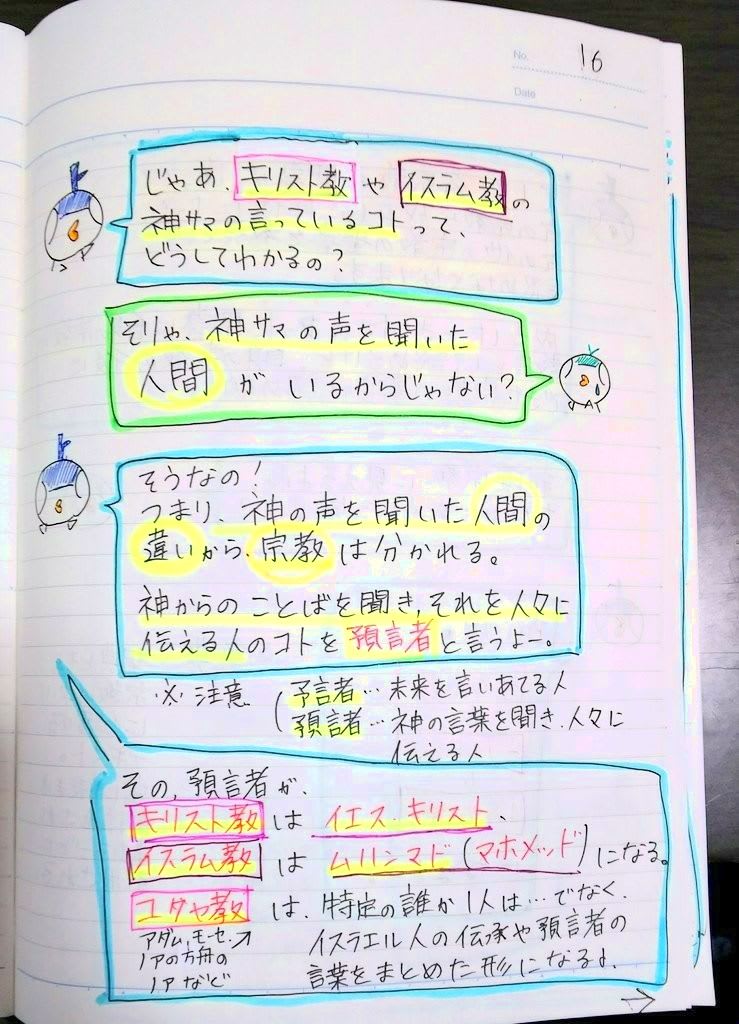 No. 16
Date
じゃあ、キリスト教やイスラム教の
神サマの言っているコトって、
どうしてわかるの?
そりゃ、神サマの声を聞いた
人間がいるからじゃない?
そうなの!
つまり、神の声を聞いた人間の
違いから、宗教は分かれる。
神からのことばを聞き、それを人々に
伝える人のコトを預言者と言うよー。
※注意 (予言者…未来を言いあてる人
預言者…神の言葉を聞き、人々に
伝える人
その、預言者が、
キリスト教はイエス・キリスト、
イスラム教はムハンマド(マホメッド)になる。
ユダヤ教は、特定の誰か1人は…でなく、
イスラエル人の伝承や預言者の
言葉をまとめた形になるよ。
アダム、モーセ、↗
ノアの方舟の
ノアなど
→